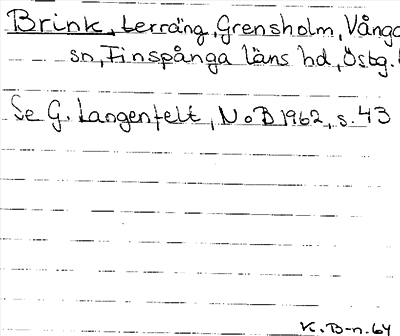 Brink, terräng, Grensholm, Vånga
sn, Finspånga läns hd, Ösbg.
Se G. Langenfelt, NoB 1962, s. 43
K. B-n. 64